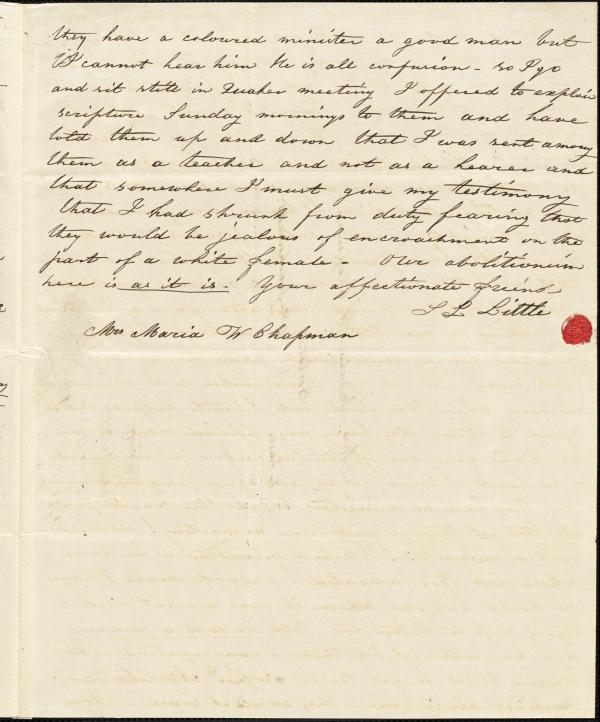 they have a coloured minister a good man but
I cannot hear him He is all confusion - so I go
and sit still in Quaker meeting I offered to explain
scripture Sunday mornings to them and have
told them up and down that I was sent among
them as a teacher and not as a hearer and
that somewhere I must give my testimony
that I had shrunk from duty fearing that
they would be jealous of encroachment on the
part of a white female - Our abolitionism
here is as it is - Your affectionate friend
S L Little
Mrs Maria W Chapman